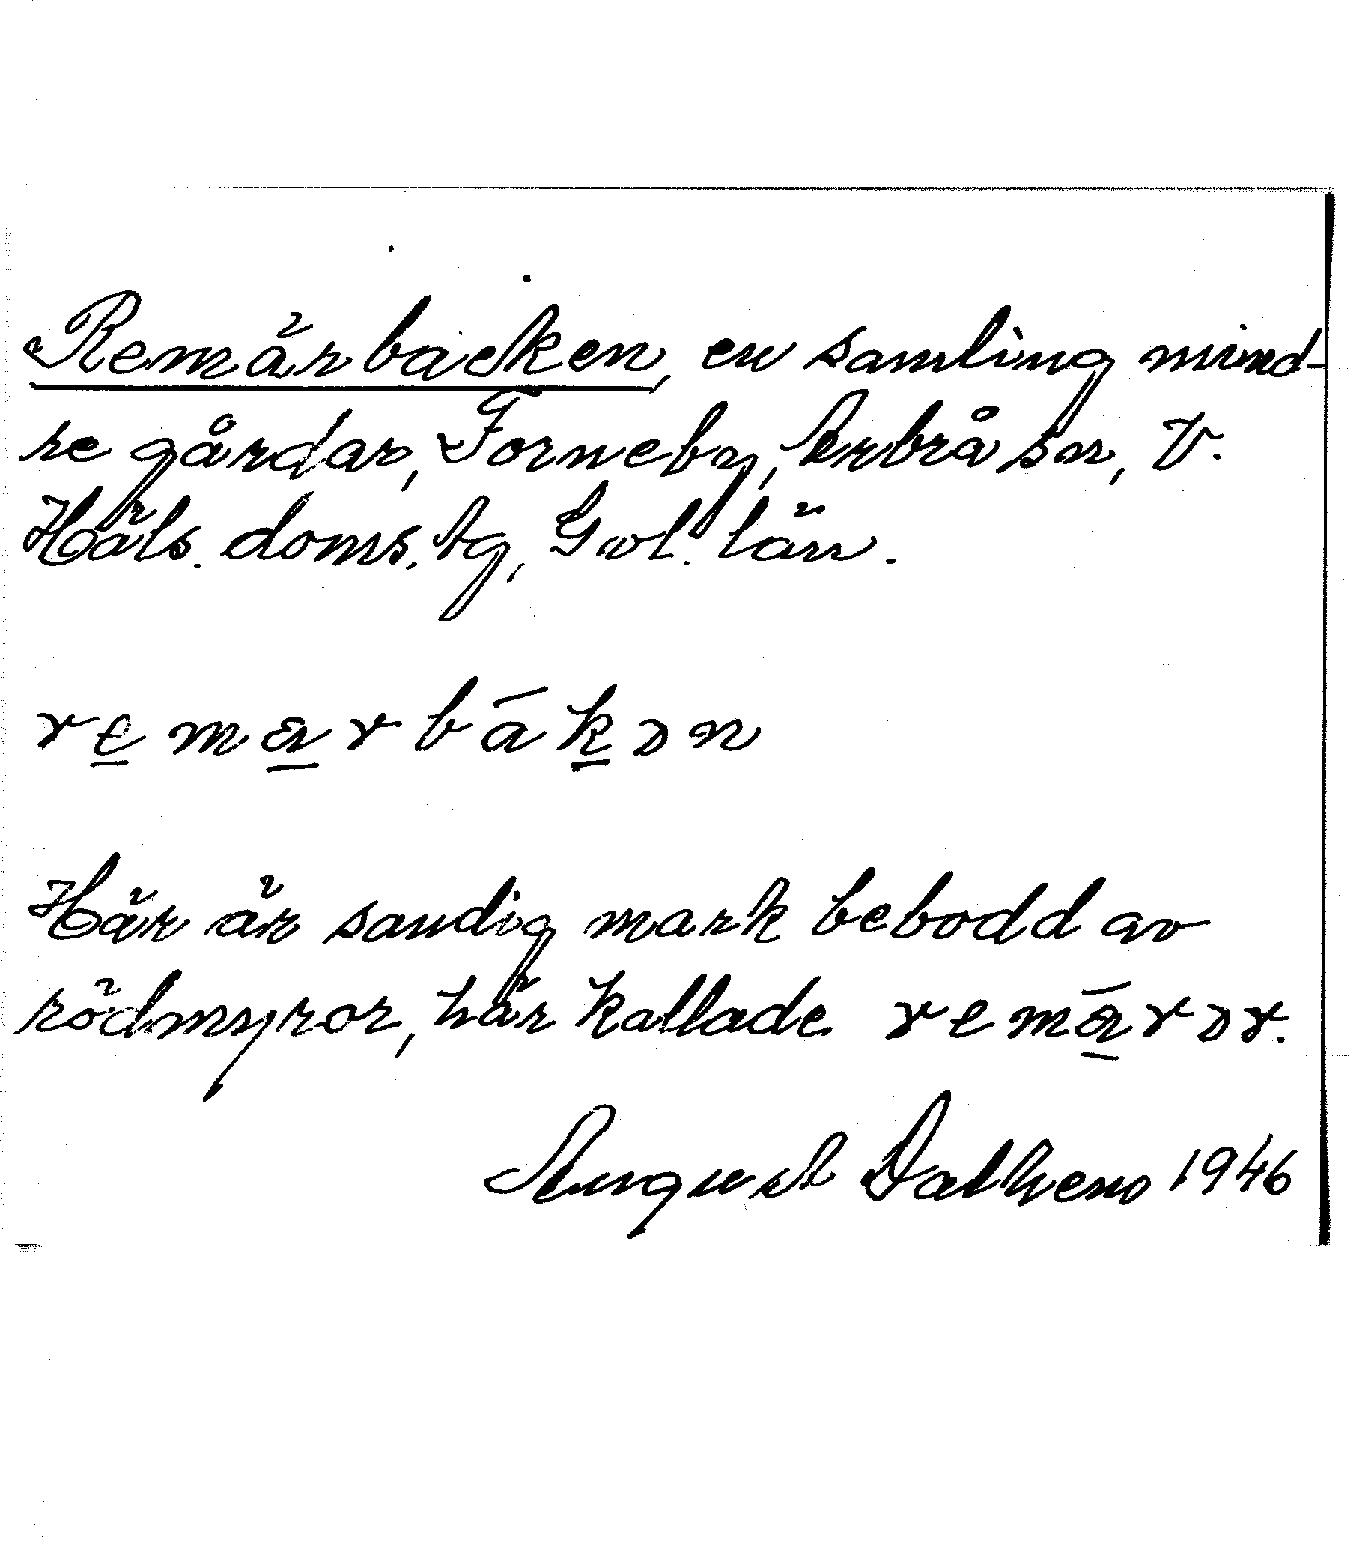 Remärbacken, en samling mind-
re gårdar, Forneby, Arbrå sn, V.
Häls. doms. tg, Gvl. län.
remärbákən
Här är sandig mark bebodd av
rödmyror, här kallade remǟrər.
August Dalhem 1946